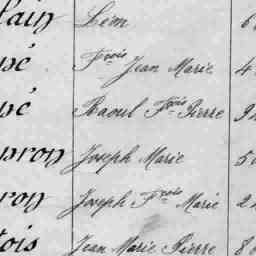 lain Lém 6
né Fçois Jean Marie 4
né Raoul Fçois Pierre 9
pron Joseph Marie 5
ron Joseph Fçois Marie 2
tois Jean Marie Pierre 8